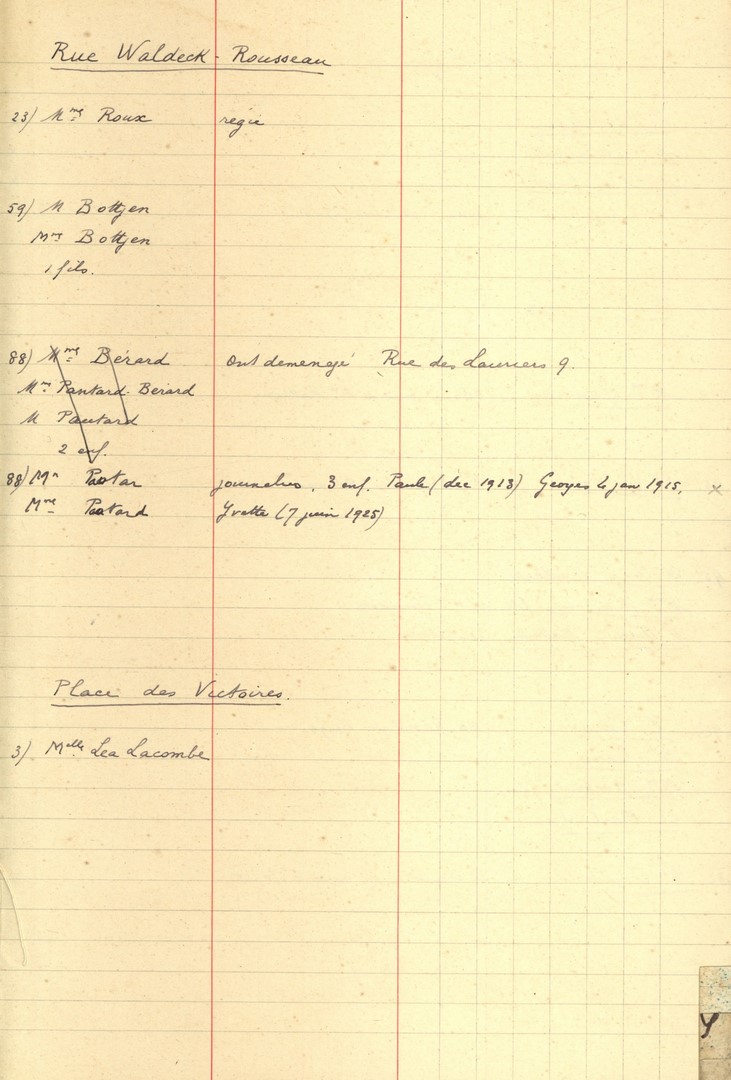 Rue Waldeck-Rousseau
23) Mme Roux régie
59) M Bottjen
Mme Bottjen
1 fils.
88) Mme Bérard Ont demenagé Rue des Lauriers 9.
Mme Pantard-Bérard
M Pautard
2 enf.
88) Mr 3 enf. Paule (dec 1913) Georges 4 jan 1915. ×
Mme Yvette (7 juin 1925)
Place des Victoires.
3) Melle Lea Lacombe
Y